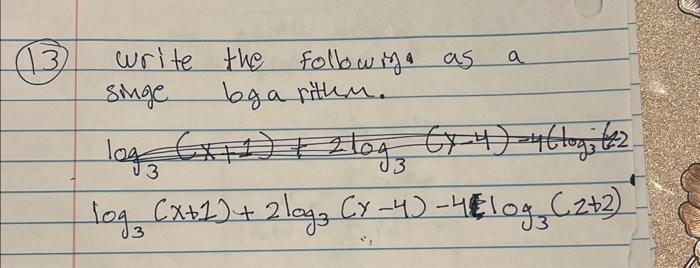 13 write the following as a
singe logarithm.
log₃ (x+1) + 2log₃ (y-4) -4(log₃ (z2
log₃ (x+1) + 2log₃ (y-4) -4 log₃ (z+2)